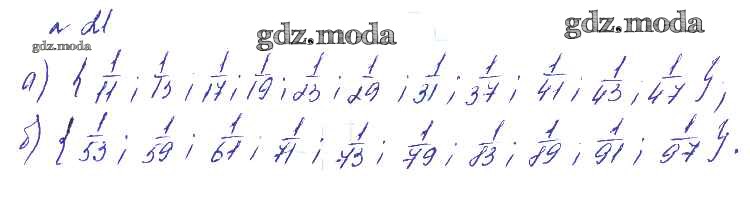 № 21
gdz.moda
gdz.moda
gdz.moda
а) { 1/11 ; 1/13 ; 1/17 ; 1/19 ; 1/23 ; 1/29 ; 1/31 ; 1/37 ; 1/41 ; 1/43 ; 1/47 } ;
б) { 1/53 ; 1/59 ; 1/61 ; 1/71 ; 1/73 ; 1/79 ; 1/83 ; 1/89 ; 1/91 ; 1/97 } .